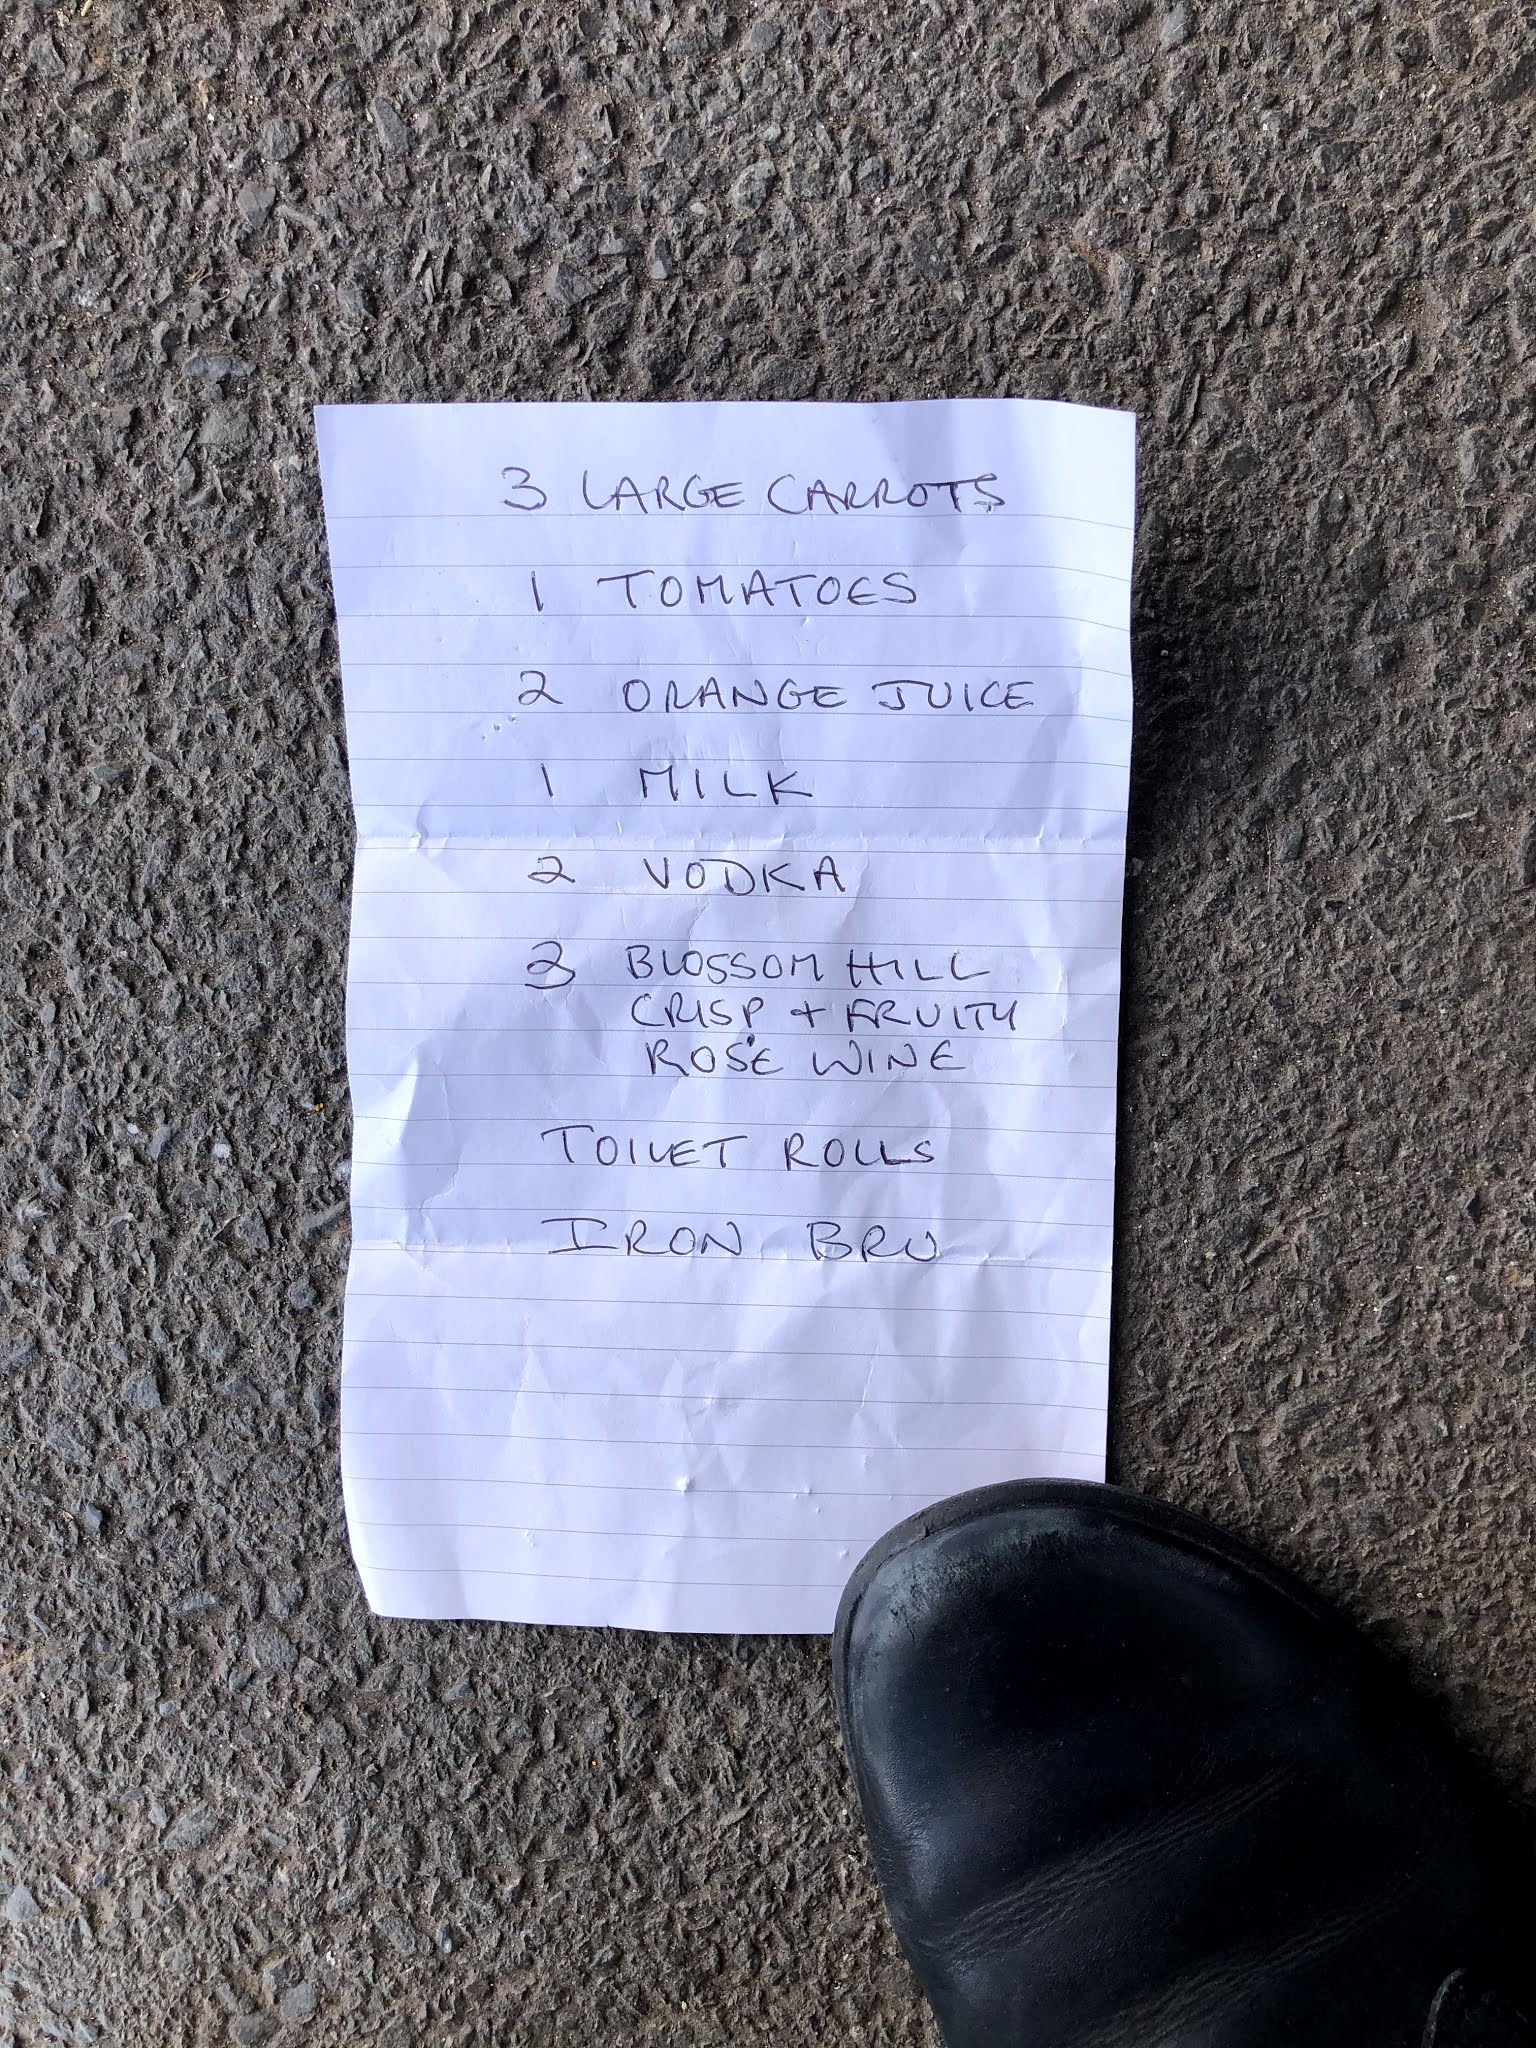 3 LARGE CARROTS
1 TOMATOES
2 ORANGE JUICE
1 MILK
2 VODKA
3 BLOSSOM HILL
CRISP + FRUITY
ROSE WINE
TOILET ROLLS
IRON BRU